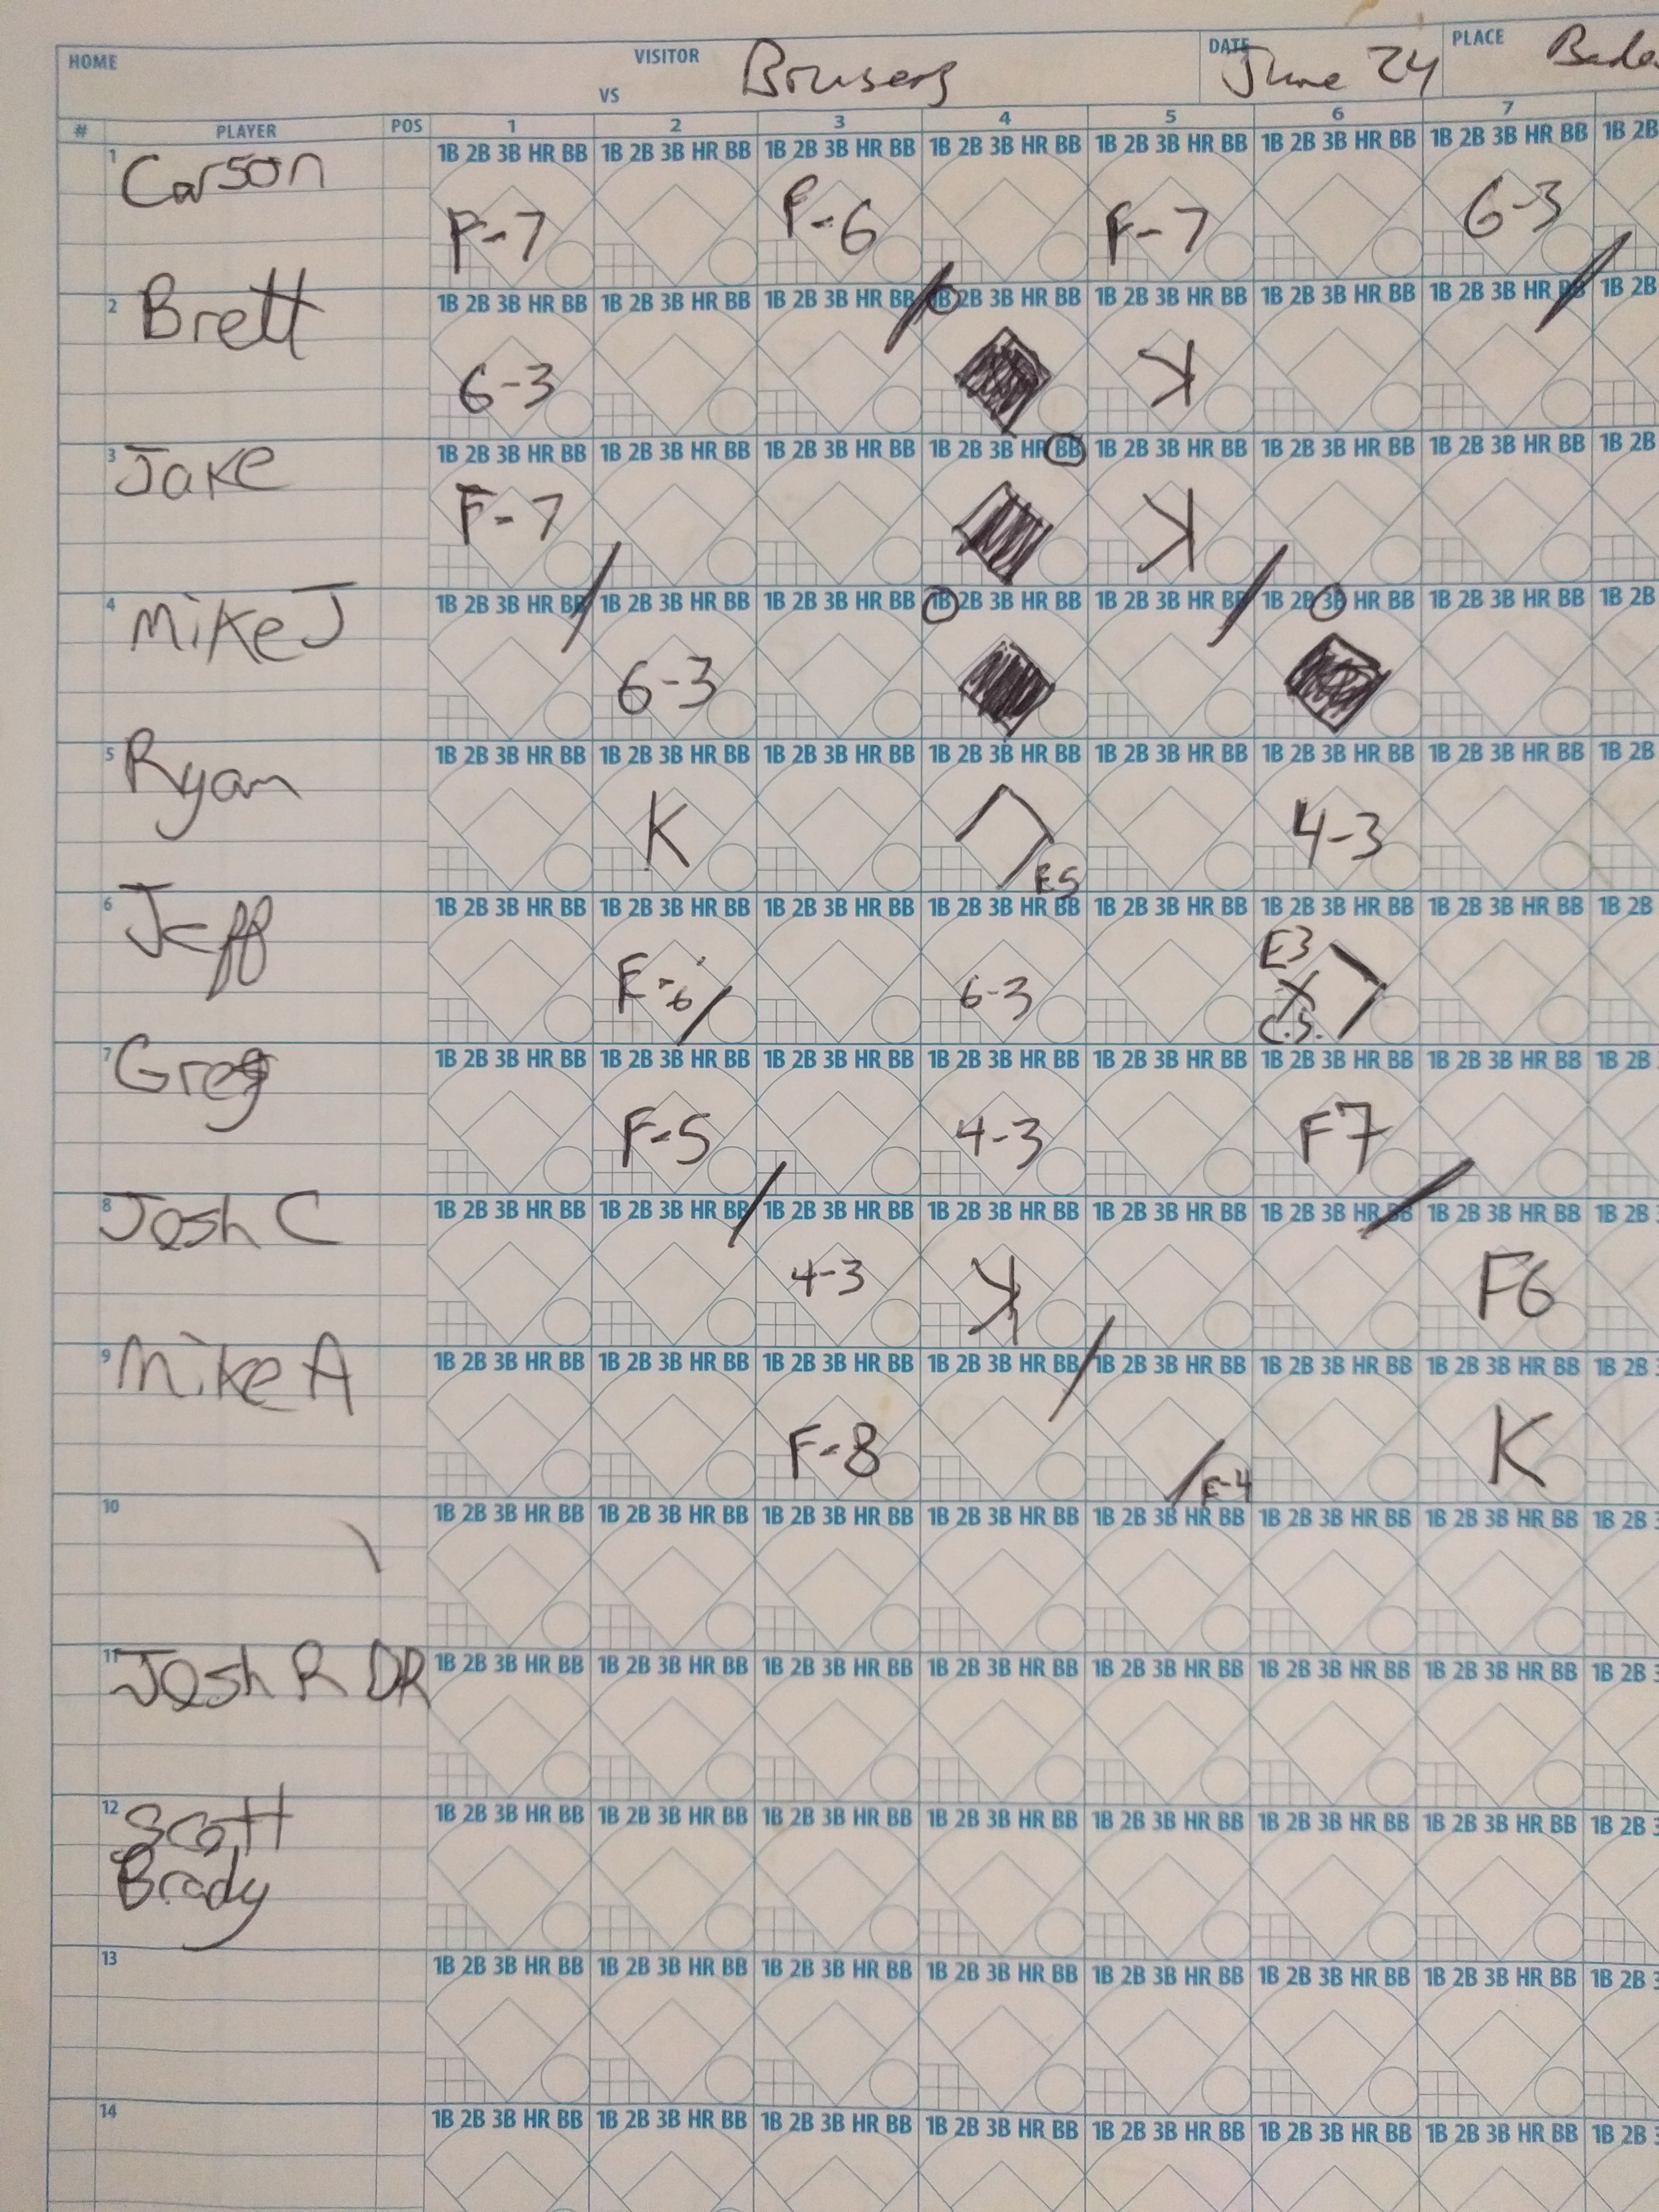 HOME VS VISITOR Brusers DATE June 24 PLACE
# PLAYER POS 1 2 3 4 5 6 7
1B 2B 3B HR BB 1B 2B 3B HR BB 1B 2B 3B HR BB 1B 2B 3B HR BB 1B 2B 3B HR BB 1B 2B 3B HR BB 1B 2B 3B HR BB 1B 2B
1 Carson F-7 F-6 F-7 6-3
1B 2B 3B HR BB 1B 2B 3B HR BB 1B 2B 3B HR BB 1B 2B 3B HR BB 1B 2B 3B HR BB 1B 2B 3B HR BB 1B 2B 3B HR BB 1B 2B
2 Brett 6-3 K
1B 2B 3B HR BB 1B 2B 3B HR BB 1B 2B 3B HR BB 1B 2B 3B HR BB 1B 2B 3B HR BB 1B 2B 3B HR BB 1B 2B 3B HR BB 1B 2B
3 Jake F-7 K
1B 2B 3B HR BB 1B 2B 3B HR BB 1B 2B 3B HR BB 1B 2B 3B HR BB 1B 2B 3B HR BB 1B 2B 3B HR BB 1B 2B 3B HR BB 1B 2B
4 Mike J 6-3
1B 2B 3B HR BB 1B 2B 3B HR BB 1B 2B 3B HR BB 1B 2B 3B HR BB 1B 2B 3B HR BB 1B 2B 3B HR BB 1B 2B 3B HR BB 1B 2B
5 Ryan K E5 4-3
1B 2B 3B HR BB 1B 2B 3B HR BB 1B 2B 3B HR BB 1B 2B 3B HR BB 1B 2B 3B HR BB 1B 2B 3B HR BB 1B 2B 3B HR BB 1B 2B
6 Jeff E-6 6-3 E3 X C.S.
1B 2B 3B HR BB 1B 2B 3B HR BB 1B 2B 3B HR BB 1B 2B 3B HR BB 1B 2B 3B HR BB 1B 2B 3B HR BB 1B 2B 3B HR BB 1B 2B
7 Greg F-5 4-3 F7
1B 2B 3B HR BB 1B 2B 3B HR BB 1B 2B 3B HR BB 1B 2B 3B HR BB 1B 2B 3B HR BB 1B 2B 3B HR BB 1B 2B 3B HR BB 1B 2B
8 Josh C 4-3 K F6
1B 2B 3B HR BB 1B 2B 3B HR BB 1B 2B 3B HR BB 1B 2B 3B HR BB 1B 2B 3B HR BB 1B 2B 3B HR BB 1B 2B 3B HR BB 1B 2B
9 Mike A F-8 E-4 K
1B 2B 3B HR BB 1B 2B 3B HR BB 1B 2B 3B HR BB 1B 2B 3B HR BB 1B 2B 3B HR BB 1B 2B 3B HR BB 1B 2B 3B HR BB 1B 2B 3
10
1B 2B 3B HR BB 1B 2B 3B HR BB 1B 2B 3B HR BB 1B 2B 3B HR BB 1B 2B 3B HR BB 1B 2B 3B HR BB 1B 2B 3B HR BB 1B 2B 3
11 Josh R DR
1B 2B 3B HR BB 1B 2B 3B HR BB 1B 2B 3B HR BB 1B 2B 3B HR BB 1B 2B 3B HR BB 1B 2B 3B HR BB 1B 2B 3B HR BB 1B 2B 3
12 Scott
Brady
1B 2B 3B HR BB 1B 2B 3B HR BB 1B 2B 3B HR BB 1B 2B 3B HR BB 1B 2B 3B HR BB 1B 2B 3B HR BB 1B 2B 3B HR BB 1B 2B 3
13
1B 2B 3B HR BB 1B 2B 3B HR BB 1B 2B 3B HR BB 1B 2B 3B HR BB 1B 2B 3B HR BB 1B 2B 3B HR BB 1B 2B 3B HR BB 1B 2B 3
14